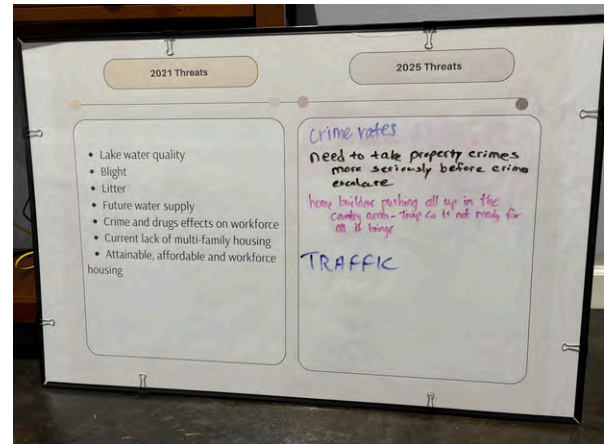 2021 Threats
• Lake water quality
• Blight
• Litter
• Future water supply
• Crime and drugs effects on workforce
• Current lack of multi-family housing
• Attainable, affordable and workforce
housing
2025 Threats
crime rates
need to take property crimes
more seriously before crime
escalate
home builders pushing all up in the
country area - Troup Co is not ready for
all it brings
TRAFFIC